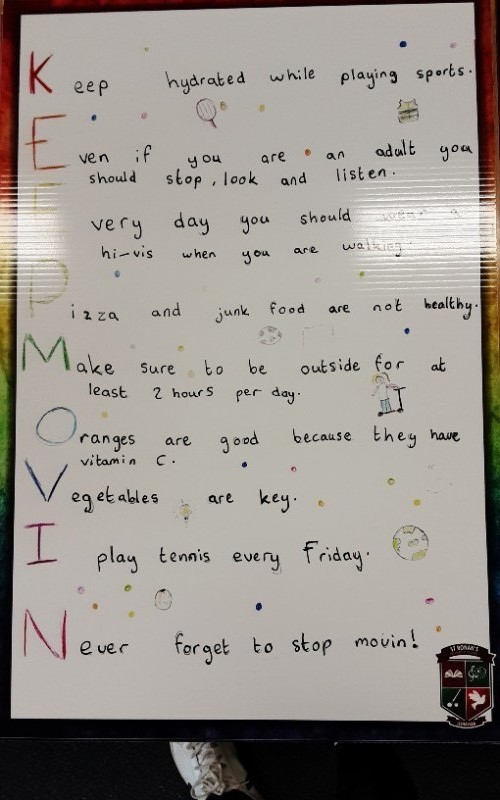 Keep hydrated while playing sports.
Even if you are an adult you
should stop, look and listen.
Every day you should wear a
hi-vis when you are walking.
Pizza and junk food are not healthy.
Make sure to be outside for at
least 2 hours per day.
Oranges are good because they have
vitamin C.
Vegetables are key.
I play tennis every Friday.
Never forget to stop movin!
ST RONAN'S